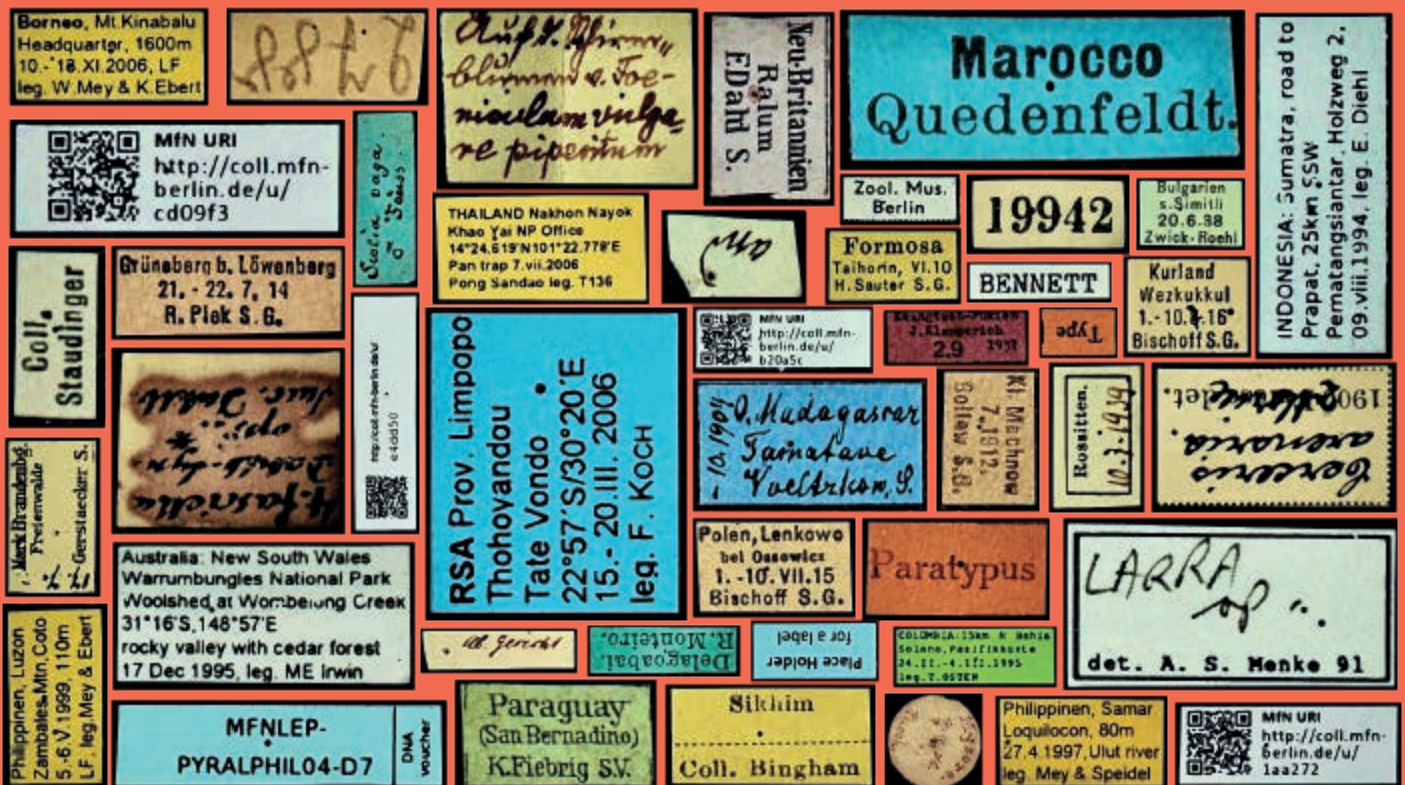 Borneo, Mt Kinabalu
Headquarter, 1600m
10.-18.XI.2006, LF
leg. W.Mey & K.Ebert
Auf d. Schirm-
blumen v. Foe-
niculum vulga-
re piperitum
Neu-Britannien
Ralum
F.Dahl S.
Marocco
Quedenfeldt.
INDONESIA: Sumatra, road to
Prapat, 25km SSW
Pematangsiantar, Holzweg 2,
09.viii.1994, leg. E. Diehl
MfN URI
http://coll.mfn-
berlin.de/u/
cd09f3
Scolia vaga
♂ Sauss.
THAILAND Nakhon Nayok
Khao Yai NP Office
14°24.619'N101°22.779'E
Pan trap 7.vii.2006
Pong Sandao leg. T136
Zool. Mus.
Berlin
19942
Bulgarien
s.Simitli
20.6.38
Zwick-Roehl
Formosa
Taihorin, VI.10
H.Sauter S.G.
BENNETT
Kurland
Wezkukkul
1.-10.4.16
Bischoff S.G.
Coll.
Staudinger
Grüneberg b. Löwenberg
21. - 22. 7. 14
R. Piek S.G.
http://coll.mfn-berlin.de/u/
e4dd50
RSA Prov. Limpopo
Thohoyandou
Tate Vondo
22°57'S/30°20'E
15.- 20.III. 2006
leg. F. KOCH
MfN URI
http://coll.mfn-
berlin.de/u/
b20a5c
J.Klapperich
2.9 1937
Type
O. Madagascar
Tamatave
Voeltzkow, S.
10.1904
Kl. Machnow
7.1912.
Bollow S.G.
Rossitten.
10.3.1939
Cerceris
arenaria.
det.
190
Mark Brandenbg.
Freienwalde
17.7. Gerstaecker S.
Australia: New South Wales
Warrumbungles National Park
Woolshed at Wombelung Creek
31°16'S,148°57'E
rocky valley with cedar forest
17 Dec 1995, leg. ME Irwin
Polen, Lenkowo
bei Ossowicz
1. -10. VII.15
Bischoff S.G.
Paratypus
LARRA
sp
det. A. S. Menke 91
Philippinen, Luzon
Zambales,Mtn,Coto
5.-6.V.1999, 110m
LF, leg.Mey & Ebert
Delagoabai.
R. Monteiro.
Place Holder
for a label
COLOMBIA:15km N Bahia
Solano,Pazifikküste
24.II.-4.III.1995
leg.T.OSTEN
MFNLEP-
PYRALPHIL04-D7
DNA
voucher
Paraguay
(San Bernadino)
K.Fiebrig S.V.
Sikhim
Coll. Bingham
Philippinen, Samar
Loquilocon, 80m
27.4.1997, Ulut river
leg. Mey & Speidel
MfN URI
http://coll.mfn-
berlin.de/u/
1aa272